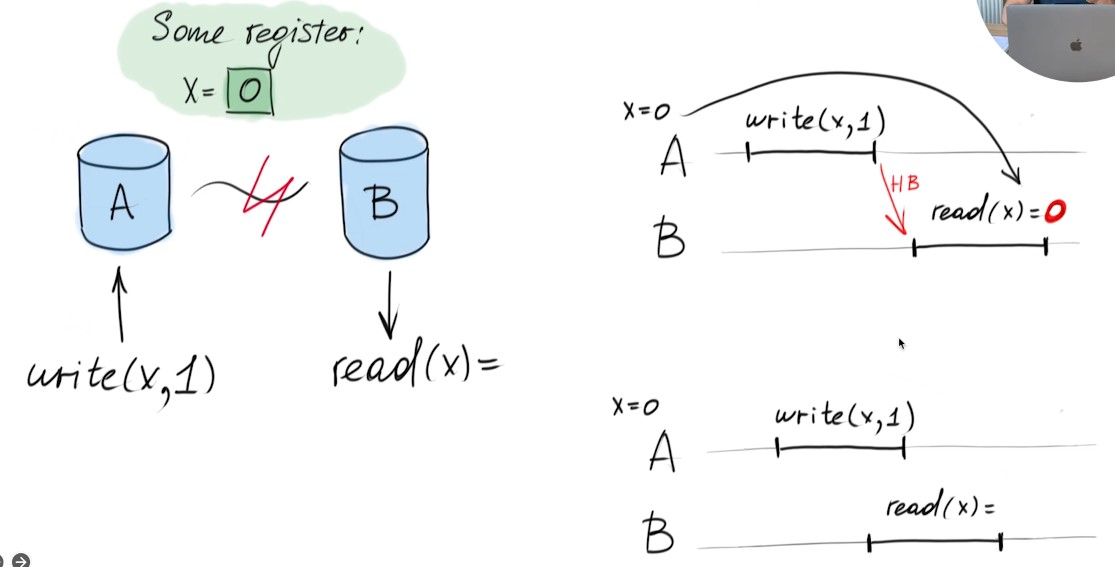 Some register:
X= 0
A
B
write(x,1)
read(x)=
X=0
write(x,1)
A
HB
read(x)=0
B
X=0
write(x,1)
A
read(x)=
B